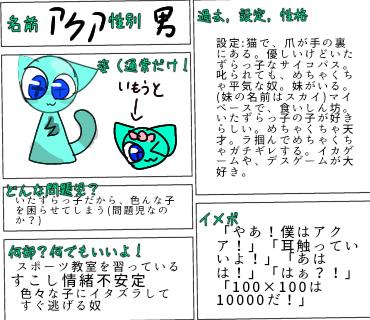 名前 アクア 性別 男
姿（通常だけ！
いもうと
どんな問題モ？
いたずらっ子だから、色んな子
を困らせてしまう(問題児なの
か？)
何部？何でもいいよ！
スポーツ教室を習っている
すこし情緒不安定
色々な子にイタズラして
すぐ逃げる奴
過去，設定，性格
設定:猫で、爪が手の裏
にある。優しいけどいた
ずらっ子なサイコパス。
叱られても、めちゃくち
ゃ平気な奴。妹がいる。
(妹の名前はスカイ)マイ
ペースで、食いしん坊。
いたずらっ子の子が好き
らしい。めちゃくちゃ天
才。ラ掴んでめちゃくち
ゃガチギレする。イカゲ
ームや、デスゲームが大
好き。
イメボ
「やあ！僕はアク
ア！」「耳触ってい
いよ！」「あは
は！」「はぁ？！」
「100×100は
10000だ！」